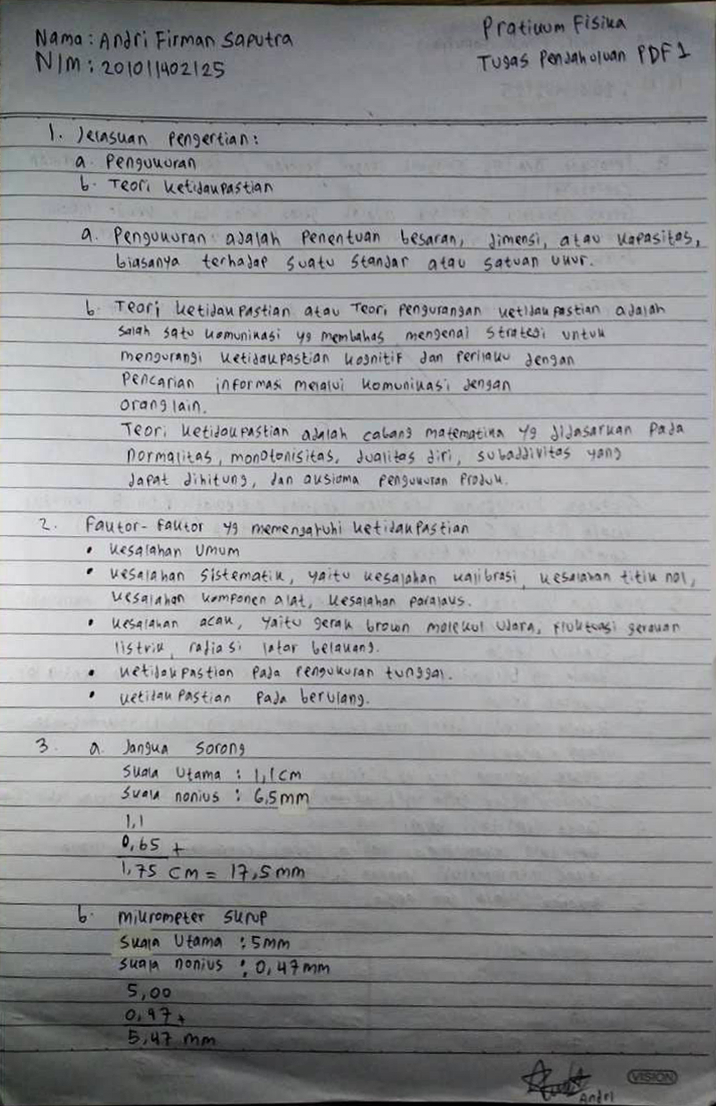 Nama : Andri Firman Saputra
NIM : 201011402125
Pratikum Fisika
Tugas Pendahuluan PDF 1
1. Jelaskan Pengertian :
a. Pengukuran
b. Teori Ketidakpastian
a. Pengukuran adalah Penentuan besaran, dimensi, atau kapasitas,
biasanya terhadap suatu standar atau satuan ukur.
b. Teori ketidakpastian atau Teori pengurangan ketidakpastian adalah
salah satu komunikasi yg membahas mengenai strategi untuk
mengurangi ketidakpastian kognitif dan perilaku dengan
Pencarian informasi melalui komunikasi dengan
orang lain.
Teori ketidakpastian adalah cabang matematika yg didasarkan pada
normalitas, monotonisitas, dualitas diri, subaddivitas yang
dapat dihitung, dan aksioma pengukuran Produk.
2. Faktor-faktor yg memengaruhi ketidakpastian
• Kesalahan Umum
• Kesalahan sistematik, yaitu kesalahan kalibrasi, kesalahan titik nol,
kesalahan komponen alat, kesalahan paralaks.
• Kesalahan acak, yaitu gerak brown molekul udara, fluktuasi gerakan
listrik, radiasi latar belakang.
• Ketidakpastian Pada Pengukuran tunggal.
• Ketidakpastian Pada berulang.
3. a. Jangka Sorong
Skala Utama : 1,1 cm
Skala nonius : 6,5 mm
1,1
0,65 +
1,75 cm = 17,5 mm
b. Mikrometer Skrup
Skala Utama : 5 mm
Skala nonius : 0,47 mm
5,00
0,97 +
5,47 mm
Andri
VISION